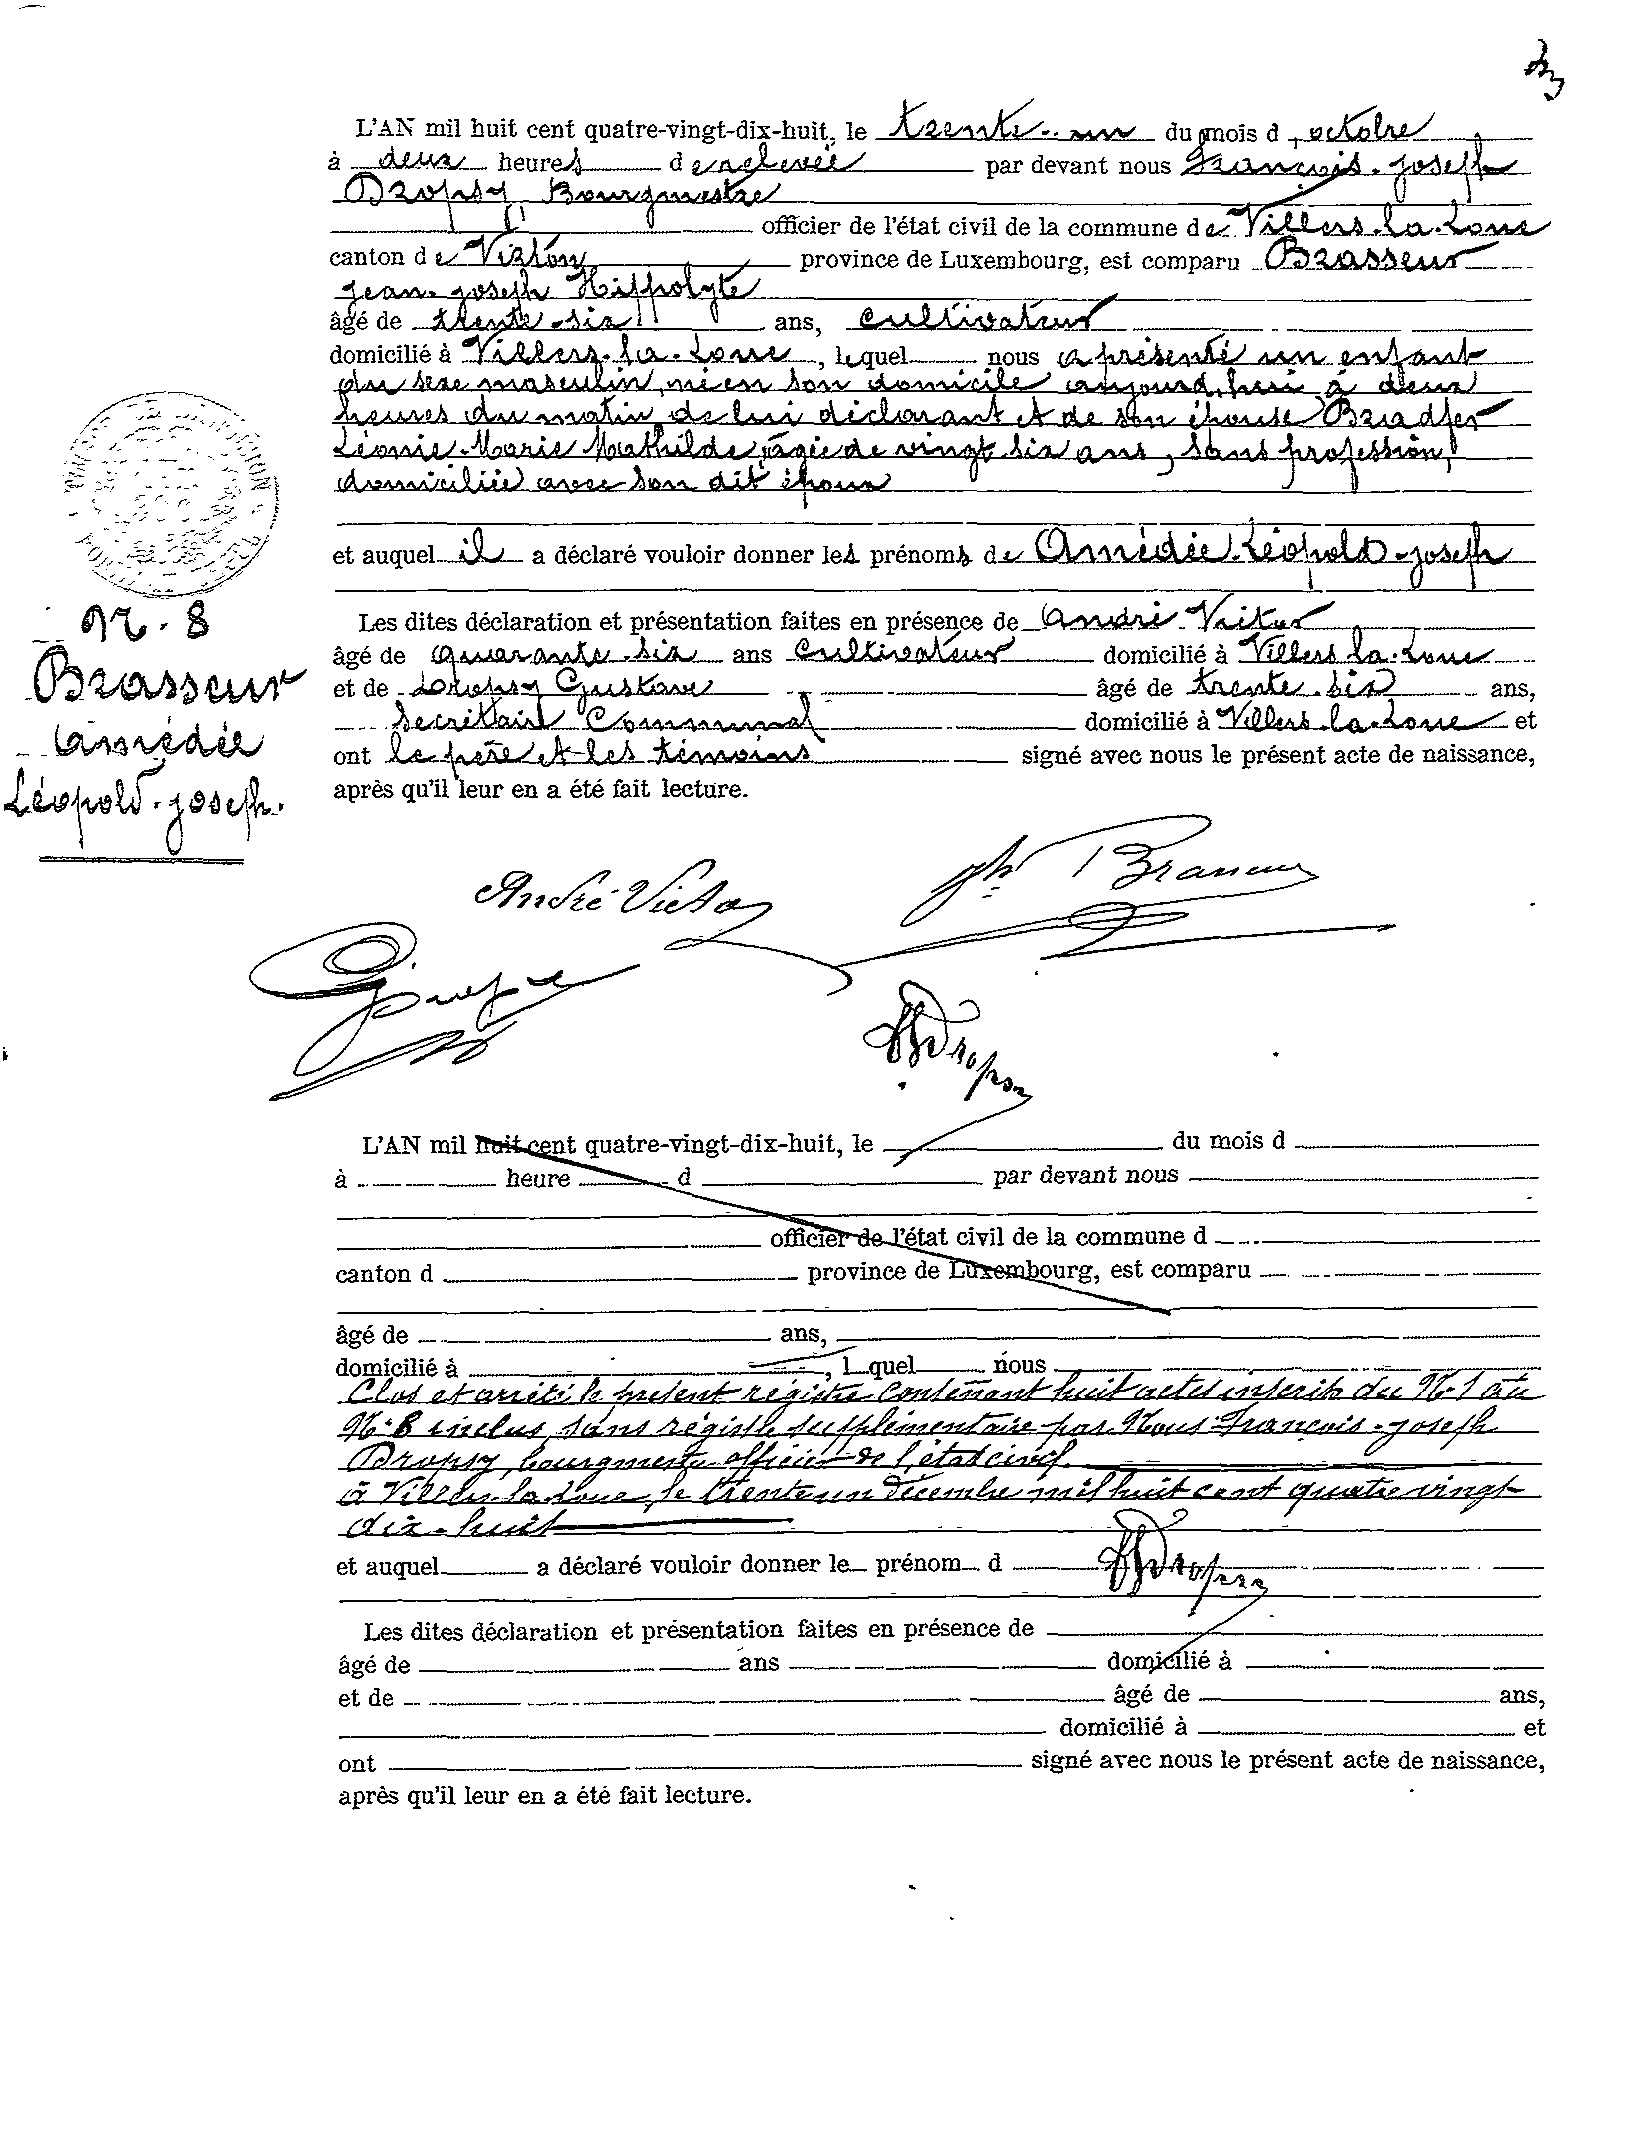 L'AN mil huit cent quatre-vingt-dix-huit, le trente-un du mois d'octobre
à deux heures de relevée par devant nous François-Joseph
Dropsy, Bourgmestre
officier de l'état civil de la commune de Villers-la-Loue
canton de Virton province de Luxembourg, est comparu Brasseur
Jean-Joseph Hippolyte
âgé de trente-six ans, cultivateur
domicilié à Villers-la-Loue, lequel nous a présenté un enfant
du sexe masculin, né en son domicile aujourd'hui à deux
heures du matin, de lui déclarant et de son épouse Bradfer
Léonie-Marie Mathilde, âgée de vingt-six ans, sans profession,
domiciliée avec son dit époux
et auquel il a déclaré vouloir donner les prénoms de Amédée-Léopold-Joseph
N°. 8
Brasseur
Amédée
Léopold-Joseph.
Les dites déclaration et présentation faites en présence de André Victor
âgé de quarante-six ans Cultivateur domicilié à Villers-la-Loue
et de Dropsy Gustave âgé de trente-six ans,
Secrétaire Communal domicilié à Villers-la-Loue et
ont le père et les témoins signé avec nous le présent acte de naissance,
après qu'il leur en a été fait lecture.
André Victor Jh Brasseur
G Dropsy
FJ Dropsy
L'AN mil huit cent quatre-vingt-dix-huit, le du mois d
à heure d par devant nous
officier de l'état civil de la commune d
canton d province de Luxembourg, est comparu
âgé de ans,
domicilié à , l quel nous
Clos et arrêté le présent registre contenant huit actes inscrits du N°. 1 au
N°. 8 inclus, sans registre supplémentaire par Nous François-Joseph
Dropsy, bourgmestre officier de l'état civil.
à Villers-la-Loue, le trente un Décembre mil huit cent quatre vingt
dix-huit
et auquel a déclaré vouloir donner le prénom d FJ Dropsy
Les dites déclaration et présentation faites en présence de
âgé de ans domicilié à
et de âgé de ans,
domicilié à et
ont signé avec nous le présent acte de naissance,
après qu'il leur en a été fait lecture.